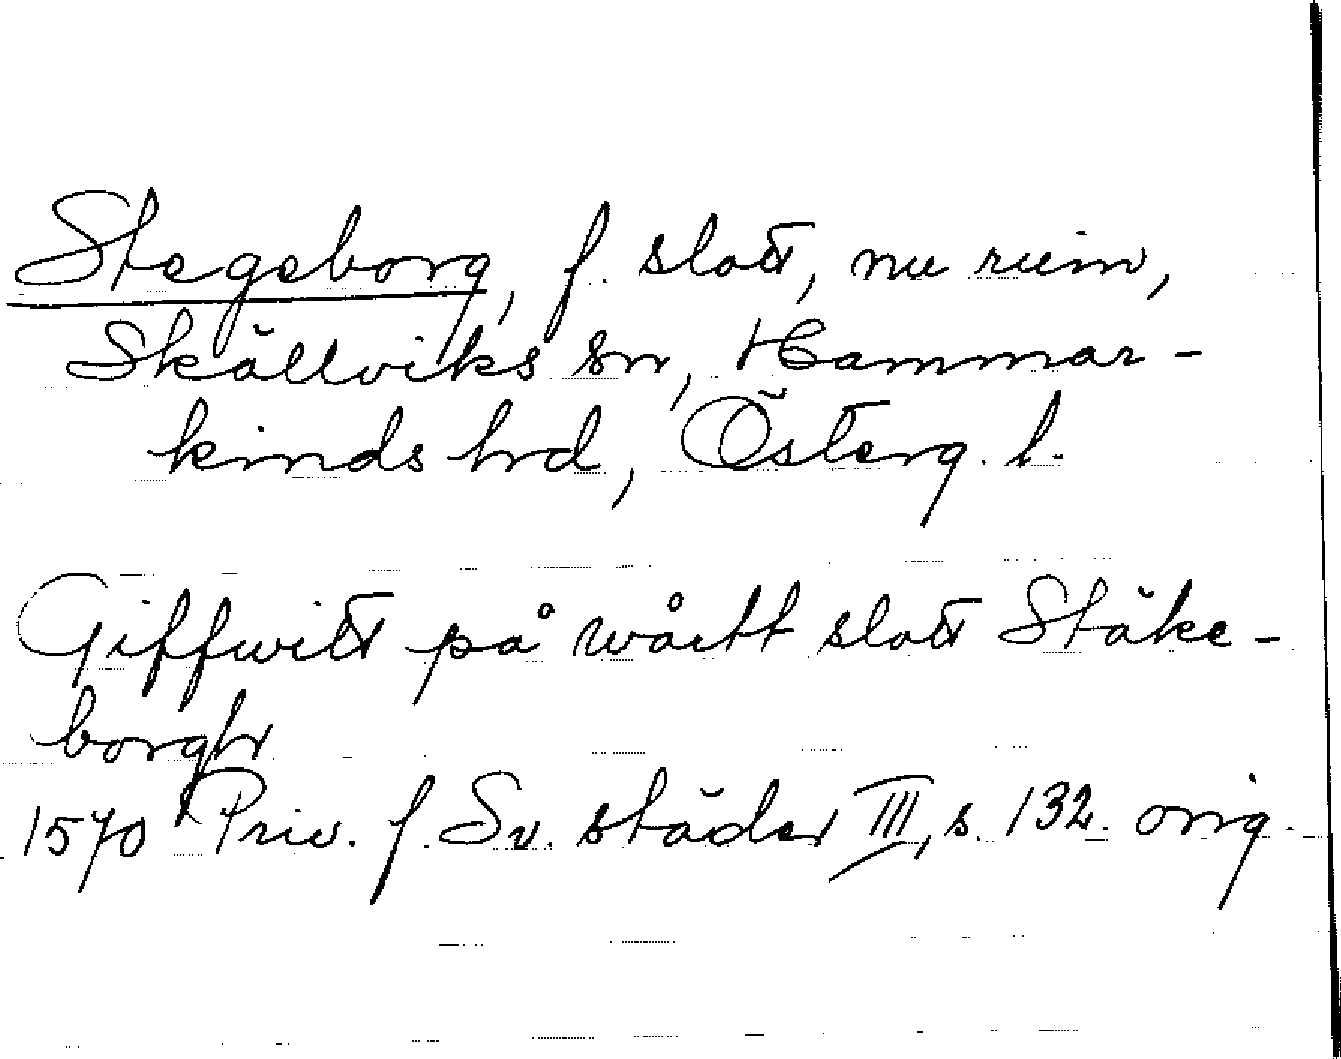 Stegeborg, f. slott, nu ruin,
Skällviks sn, Hammar-
kinds hrd, Österg. l.
Giffwitt på wårtt slott Stäke-
borgh
1570 Priv. f. Sv. städer III, s. 132. orig.